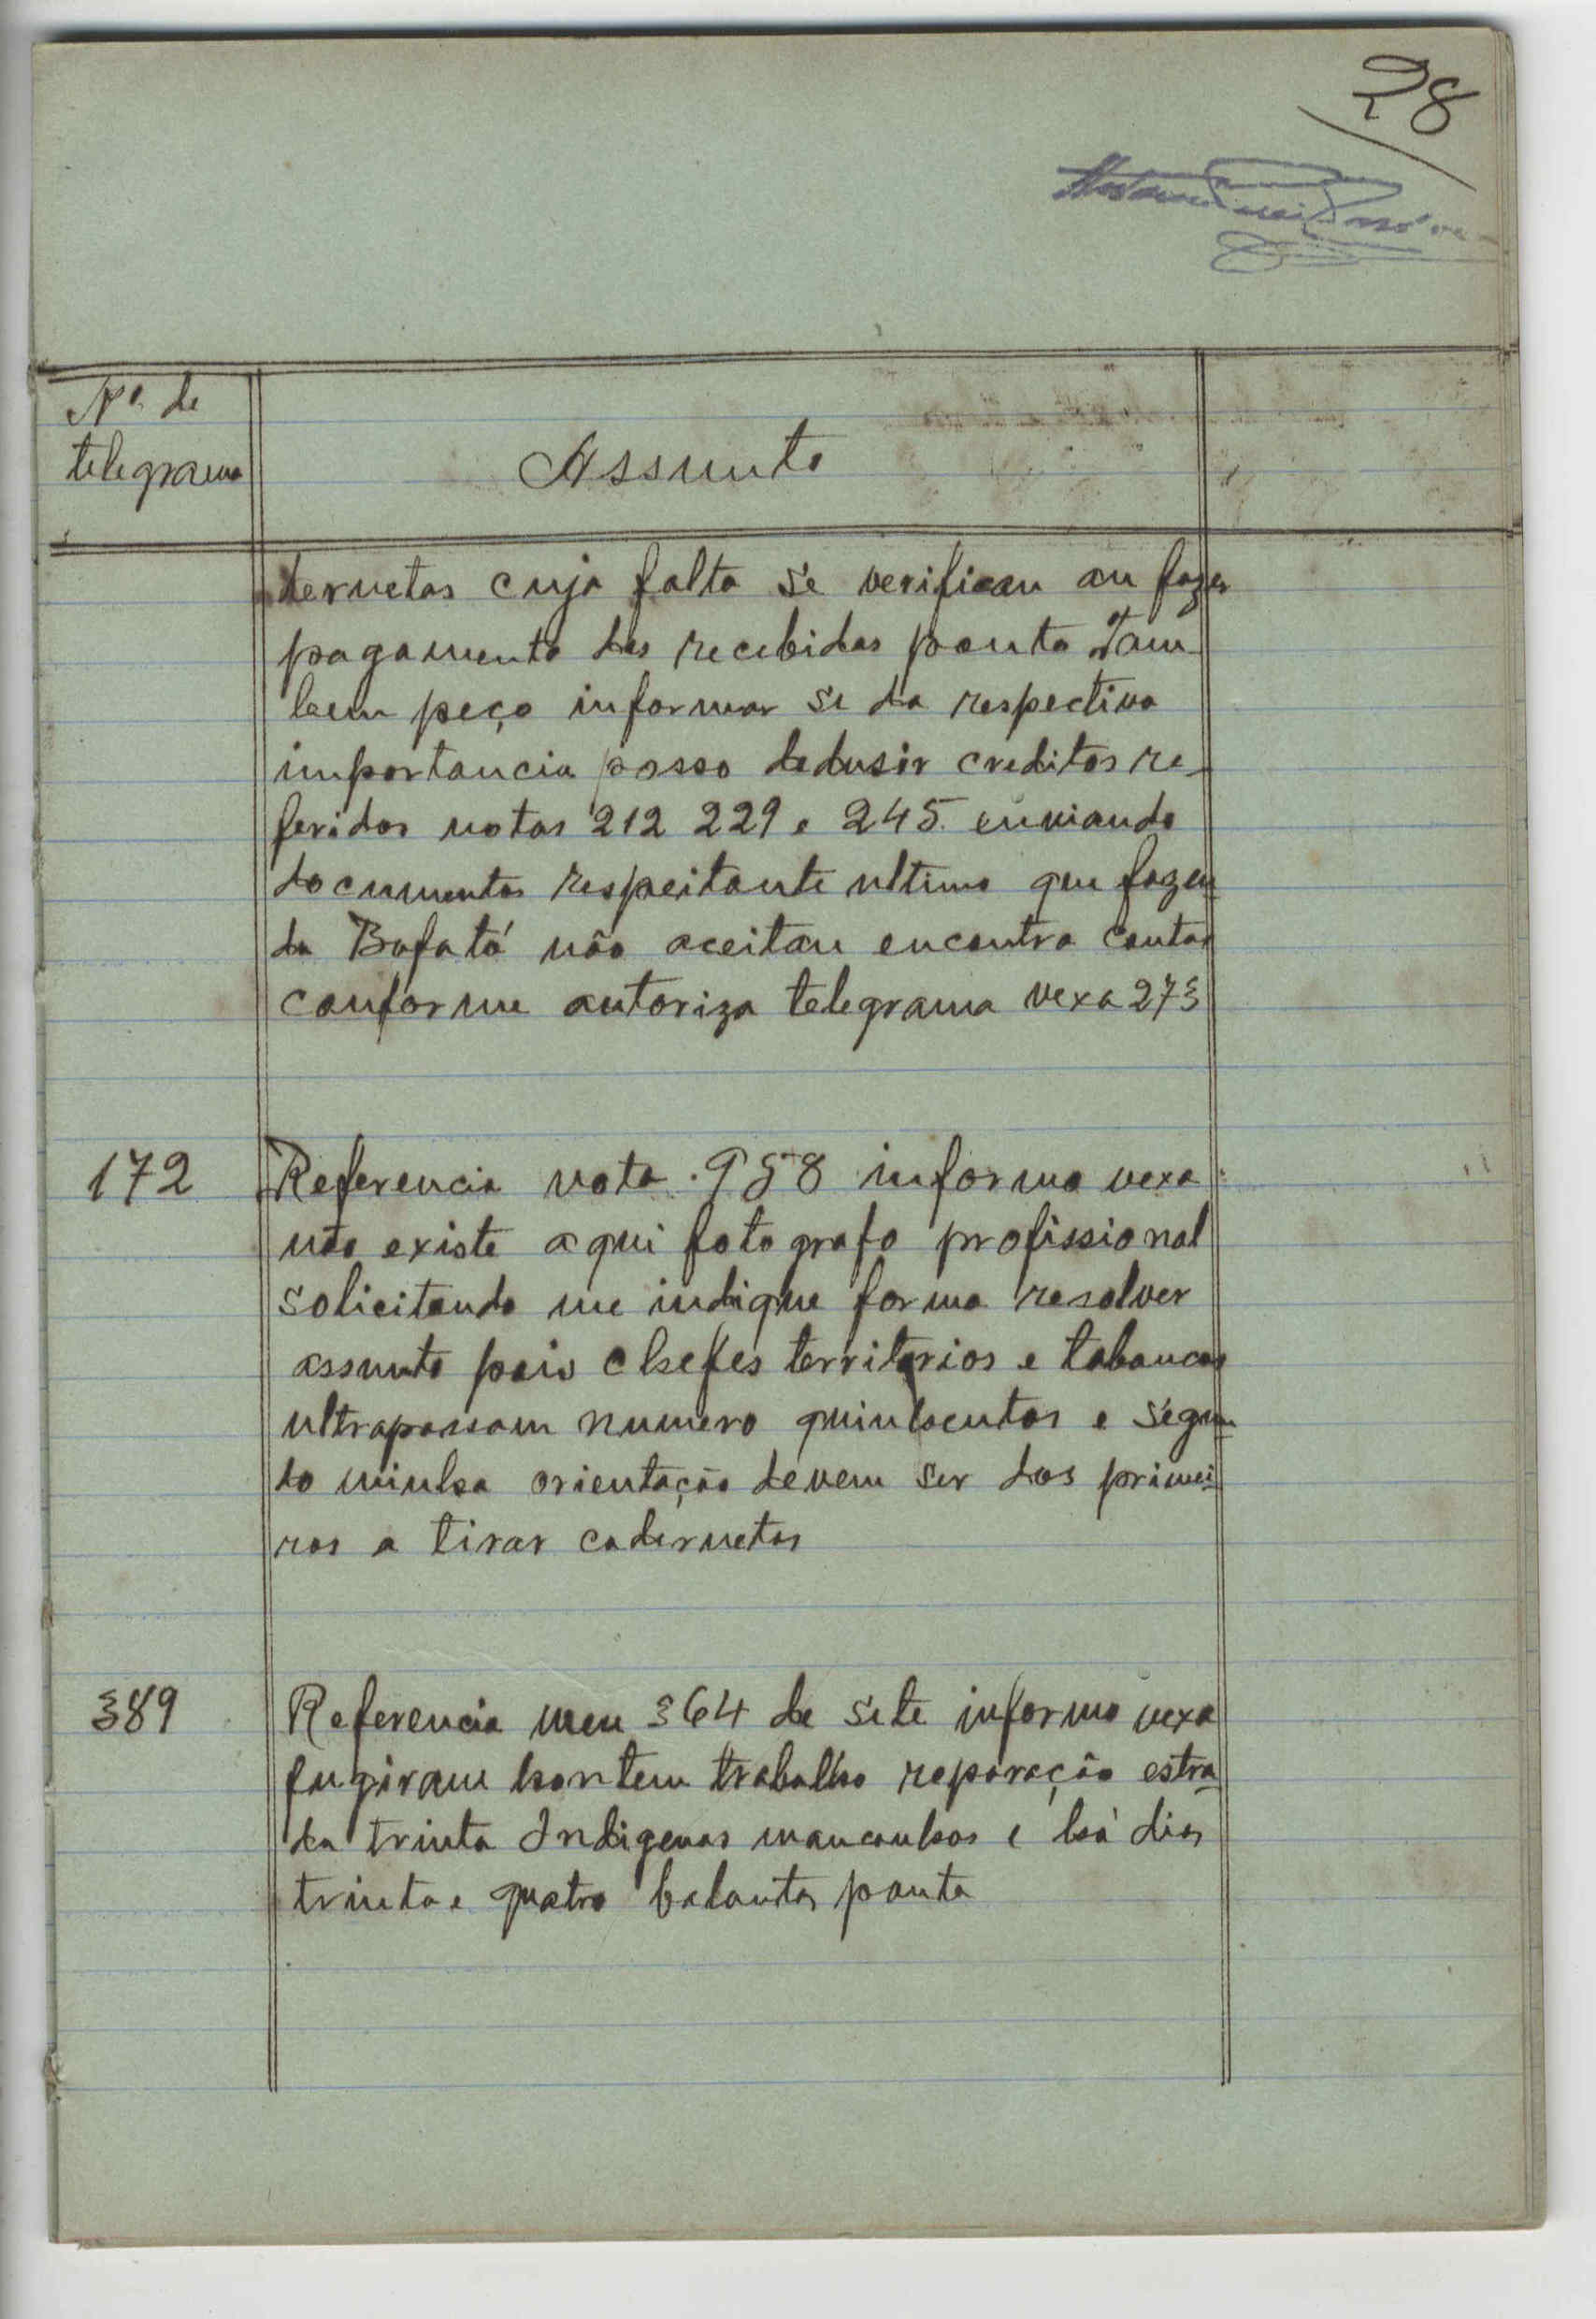 28
Nº de
telegrama
Assunto
dernetas cuja falta se verificou au fazer
pagamento das recebidas ponto Tam
bem peço informar se da respectiva
importancia posso dedusir creditos re-
feridos notas 212 229 e 245 enviando
documentos respeitante ultimo que fazen-
da Bafatá não aceitou encontro contas
conforme autoriza telegrama vexa 273
172
Referencia nota 958 informo vexa
não existe aqui fotografo profissional
solicitando me indique forma resolver
assunto pois chefes territorios e tabancas
ultrapassam numero quinhentos e segun-
do minha orientação devem ser dos primei-
ros a tirar cadernetas
389
Referencia meu 364 de sete informo vexa
fugiram hontem trabalho reparação estra-
da trinta Indigenas mancanhas e há dias
trinta e quatro balantas ponto